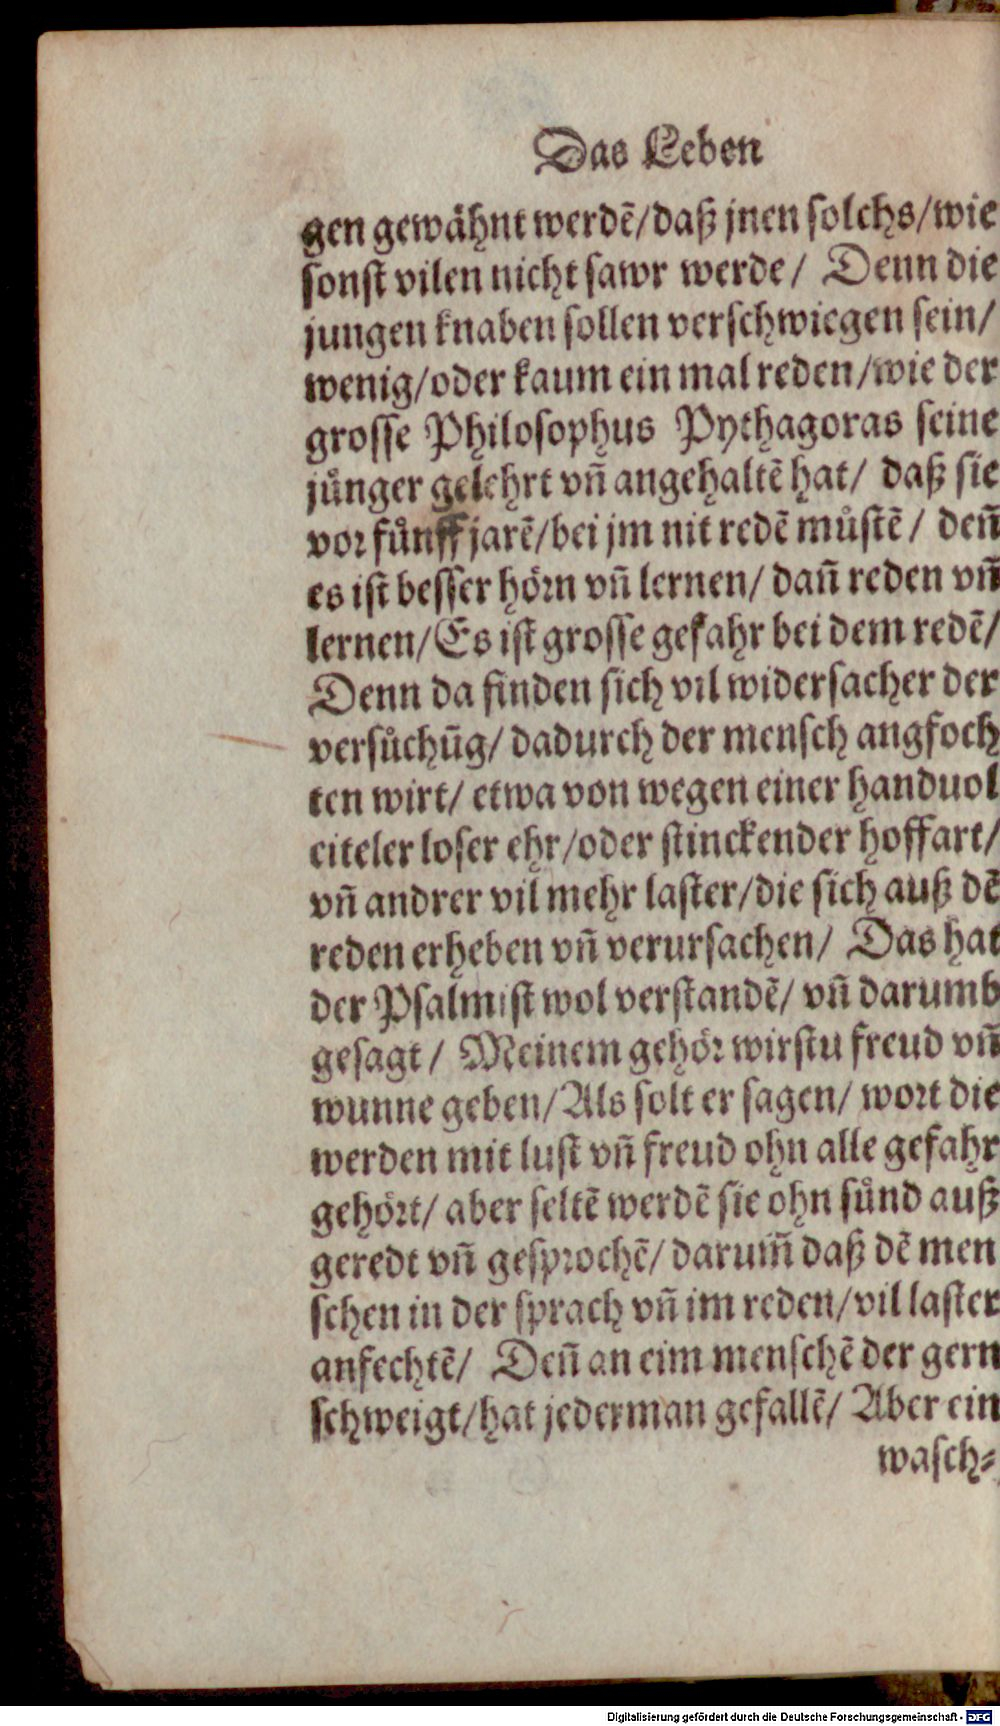 Das Leben
gen gewähnt werdē/daß jnen solchs/wie
sonst vilen nicht sawr werde/ Denn die
jungen knaben sollen verschwiegen sein/
wenig/oder kaum ein mal reden/wie der
grosse Philosophus Pythagoras seine
jůnger gelehrt vñ angehaltē hat/ daß sie
vor fůnff jarē/bei jm nit redē můstē/ deñ
es ist besser hörn vñ lernen/ dañ reden vñ
lernen/Es ist grosse gefahr bei dem redē/
Denn da finden sich vil widersacher der
versůchūg/ dadurch der mensch angfoch
ten wirt/ etwa von wegen einer handuol
eiteler loser ehr/oder stinckender hoffart/
vñ andrer vil mehr laster/die sich auß dē
reden erheben vñ verursachen/ Das hat
der Psalmist wol verstandē/ vñ darumb
gesagt/ Meinem gehör wirstu freud vñ
wunne geben/Als solt er sagen/ wort die
werden mit lust vñ freud ohn alle gefahr
gehört/ aber seltē werdē sie ohn sůnd auß
geredt vñ gesprochē/ darum̃ daß dē men
schen in der sprach vñ im reden/vil laster
anfechtē/ Deñ an eim menschē der gern
schweigt/hat jederman gefallē/ Aber ein
wasch⸗
Digitalisierung gefördert durch die Deutsche Forschungsgemeinschaft - DFG